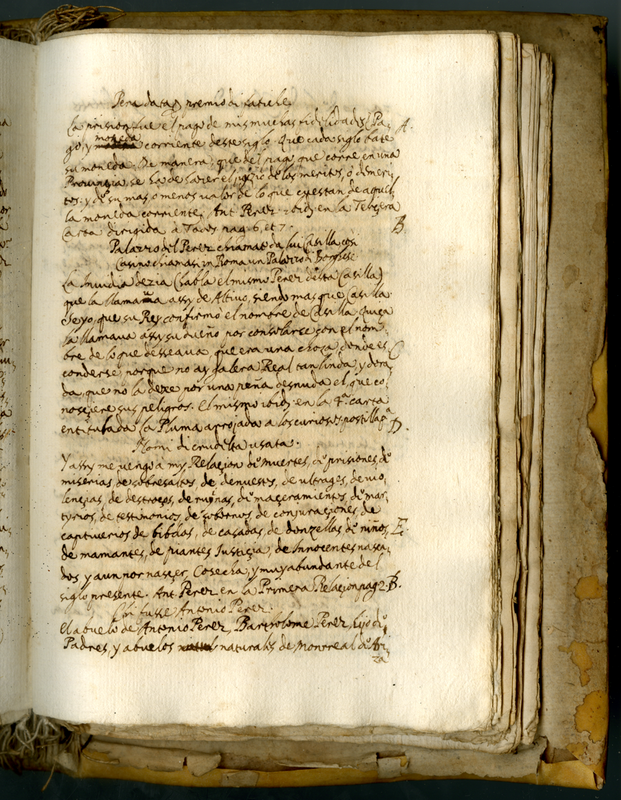 Pena data per premio di fatiche
La prision fue el pago de mis muchas fidelidades. Pa
go, y moneda corriente deste siglo. Que cada siglo bate
su moneda. De manera, que del paga que corre en una
Provinzia, se ha de hazer el juizio de los meritos, o demeri
tos. y de su mas o menos valor de lo que cuestan de aquel
la moneda corriente. Ant. Perez ibid. en la Tercera
Carta dirigida a Todos pag. 6, et 7.
A.
B
Palazzo del Perez chiamato da lui Casilla così
Casino chiamasi in Roma un Palazzo di Borghese
La Imvidia dezia (habla el mismo Perez desta Casilla)
que la llamava assy de Altivo, siendo mas que Casilla
Se yo, que su Rey confirmó el nombre de Casilla. Quiça
la llamava assy su dueño por consolarse con el nom
bre de lo que desseava, que era una choza, donde es
conderse porque no ay galera Real tan linda, y dora
da, que no la dexe por una peña desnuda el que co
nosciere sus peligros. El mismo ibid. en la 4.ª carta
entitulada la Pluma a los curiosos postilla
C
D.
Nomi di crudeltà usata.
Y assy me vengo a mys Relaçion de muertes, de prisiones, de
miserias de sobresaltos, de denuestos, de ultrages, de vio
lençias, de destroços, de ruynas, de maçeramientos, de mar
tyrios, de testimonios, de sobornos, de conjuraçiones, de
captiverios de biblias, de casadas, de donzellas, de niños,
de mamantes, de piantes Justiçia, de Innocentes nasci
dos y aun por nasçer, Cosecha, y muy abundante del
siglo presente. Ant. Perez en la Primera Relacion pag. 2. B.
E.
Chi fusse Antonio Perez.
El abuelo de Antonio Perez, Bartholome Perez, hijo de
Padres, y abuelos naturales de Monrreal de Ari
za